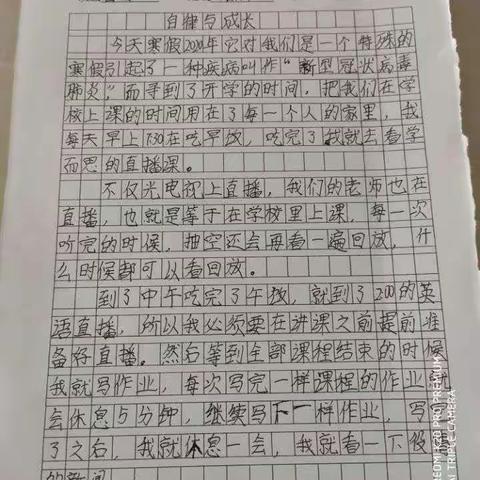 自律与成长
今天寒假2020年它对我们是一个特殊的
寒假引起了一种疾病叫作“新型冠状病毒
肺炎”而寻到了开学的时间，把我们在学
校上课的时间用在了每一个人的家里，我
每天早上7:30在吃早饭，吃完了我就去看学
而思的直播课。
不仅光电视上直播，我们的老师也在
直播，也就是等于在学校里上课，每一次
听完的时候，抽空还会再看一遍回放，什
么时候都可以看回放。
到了中午吃完了午饭，就到了2:00的英
语直播，所以我必须要在讲课之前提前准
备好直播。然后等到全部课程结束的时候
我就写作业，每次写完一样课程的作业
会休息5分钟，继续写下一样作业，写
了之后，我就休息一会，我就看一下
的新闻
REDMI K20 PRO PREMIUM
AI TRIPLE CAMERA